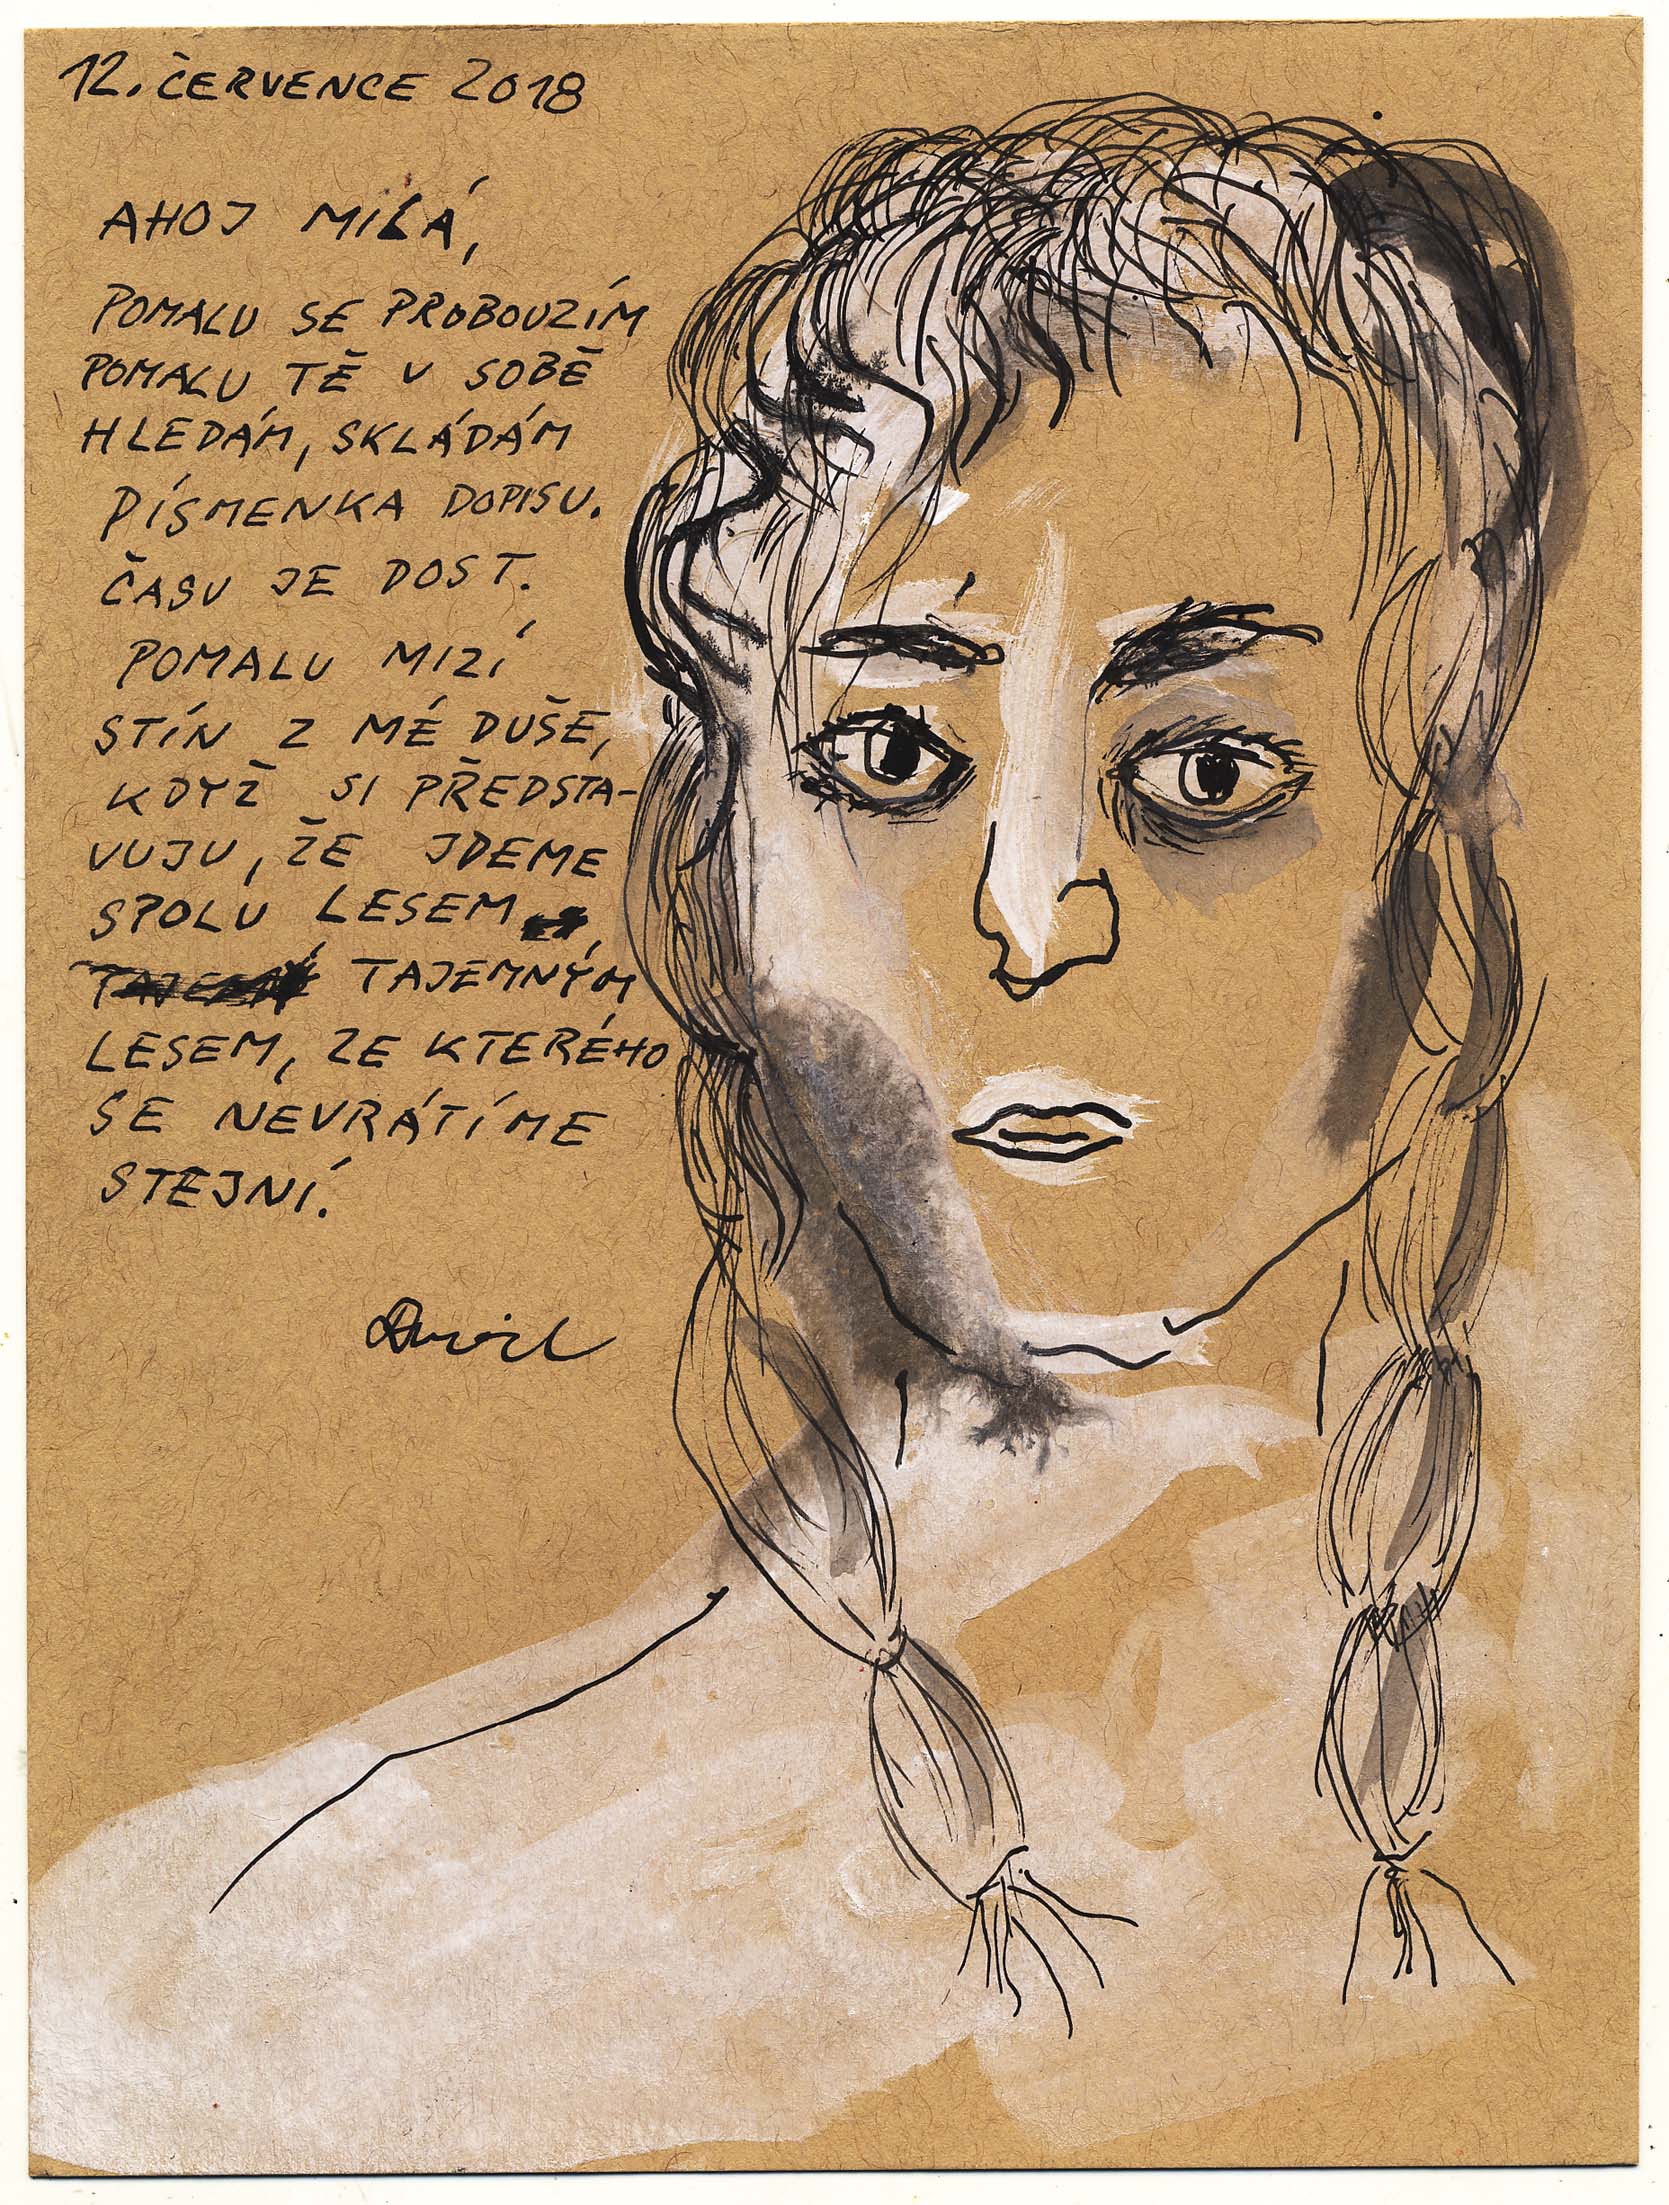 12. ČERVENCE 2018
AHOJ MILÁ,
POMALU SE PROBOUZÍM
POMALU TĚ V SOBĚ
HLEDÁM, SKLÁDÁM
PÍSMENKA DOPISU.
ČASU JE DOST.
POMALU MIZÍ
STÍN Z MÉ DUŠE,
KDYŽ SI PŘEDSTA-
VUJU, ŽE JDEME
SPOLU LESEM,
TAJEMNÝM
LESEM, ZE KTERÉHO
SE NEVRÁTÍME
STEJNÍ.